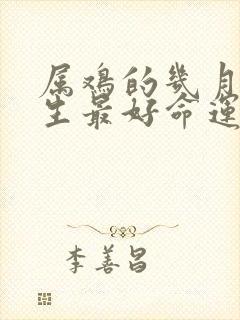 属鸡的几月
生最好命运
李善昌